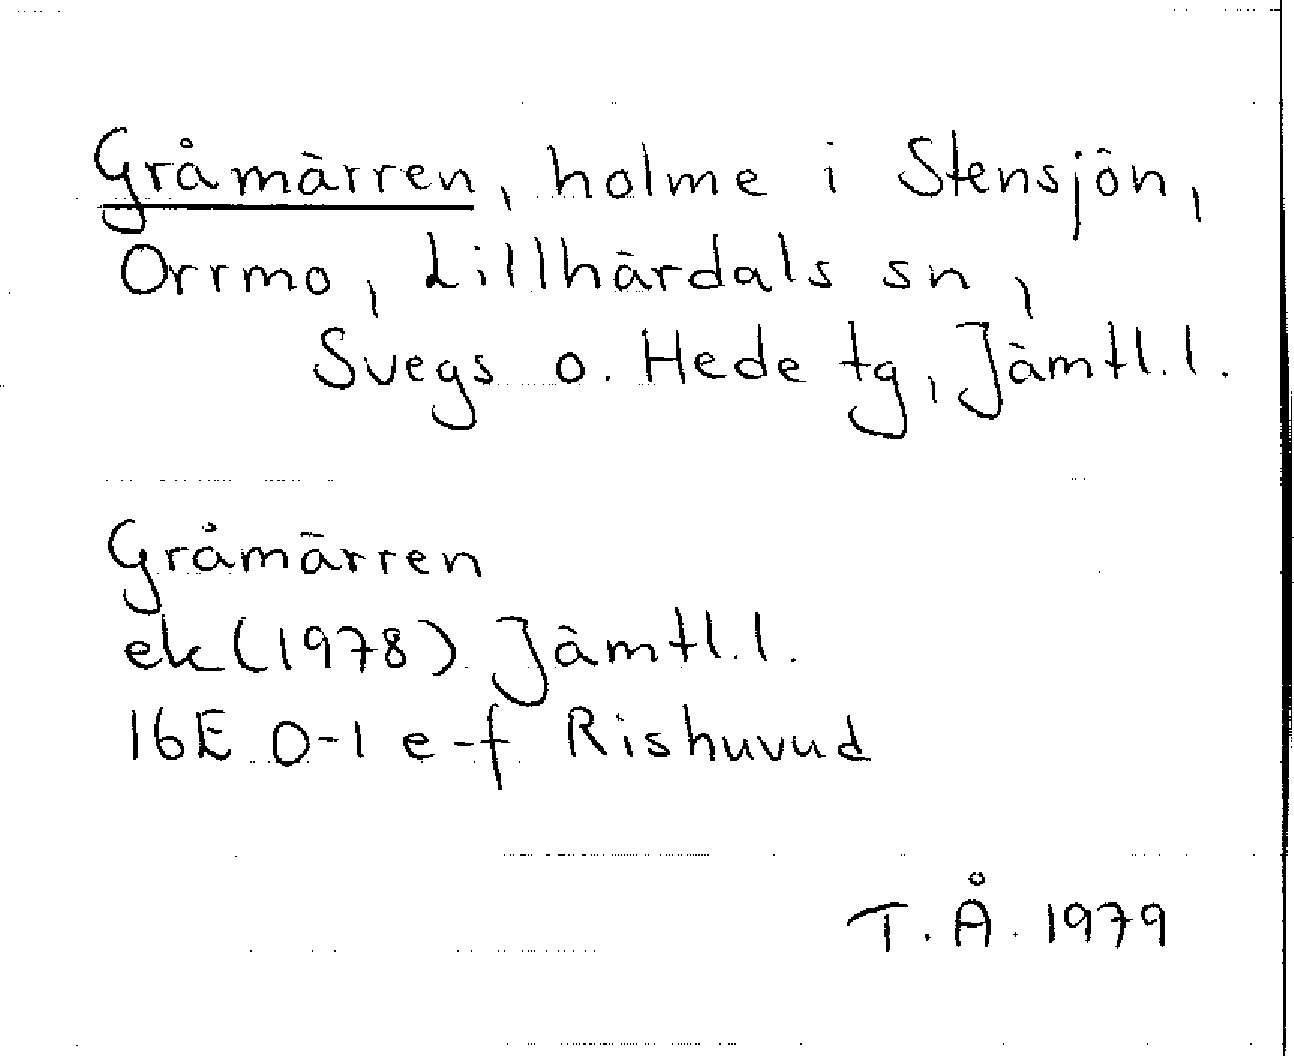 Gråmärren, holme i Stensjön,
Orrmo, Lillhärdals sn,
Svegs o. Hede tg, Jämtl.l.
Gråmärren
ek(1978) Jämtl.l.
16E 0-1 e-f Rishuvud
T.Å. 1979